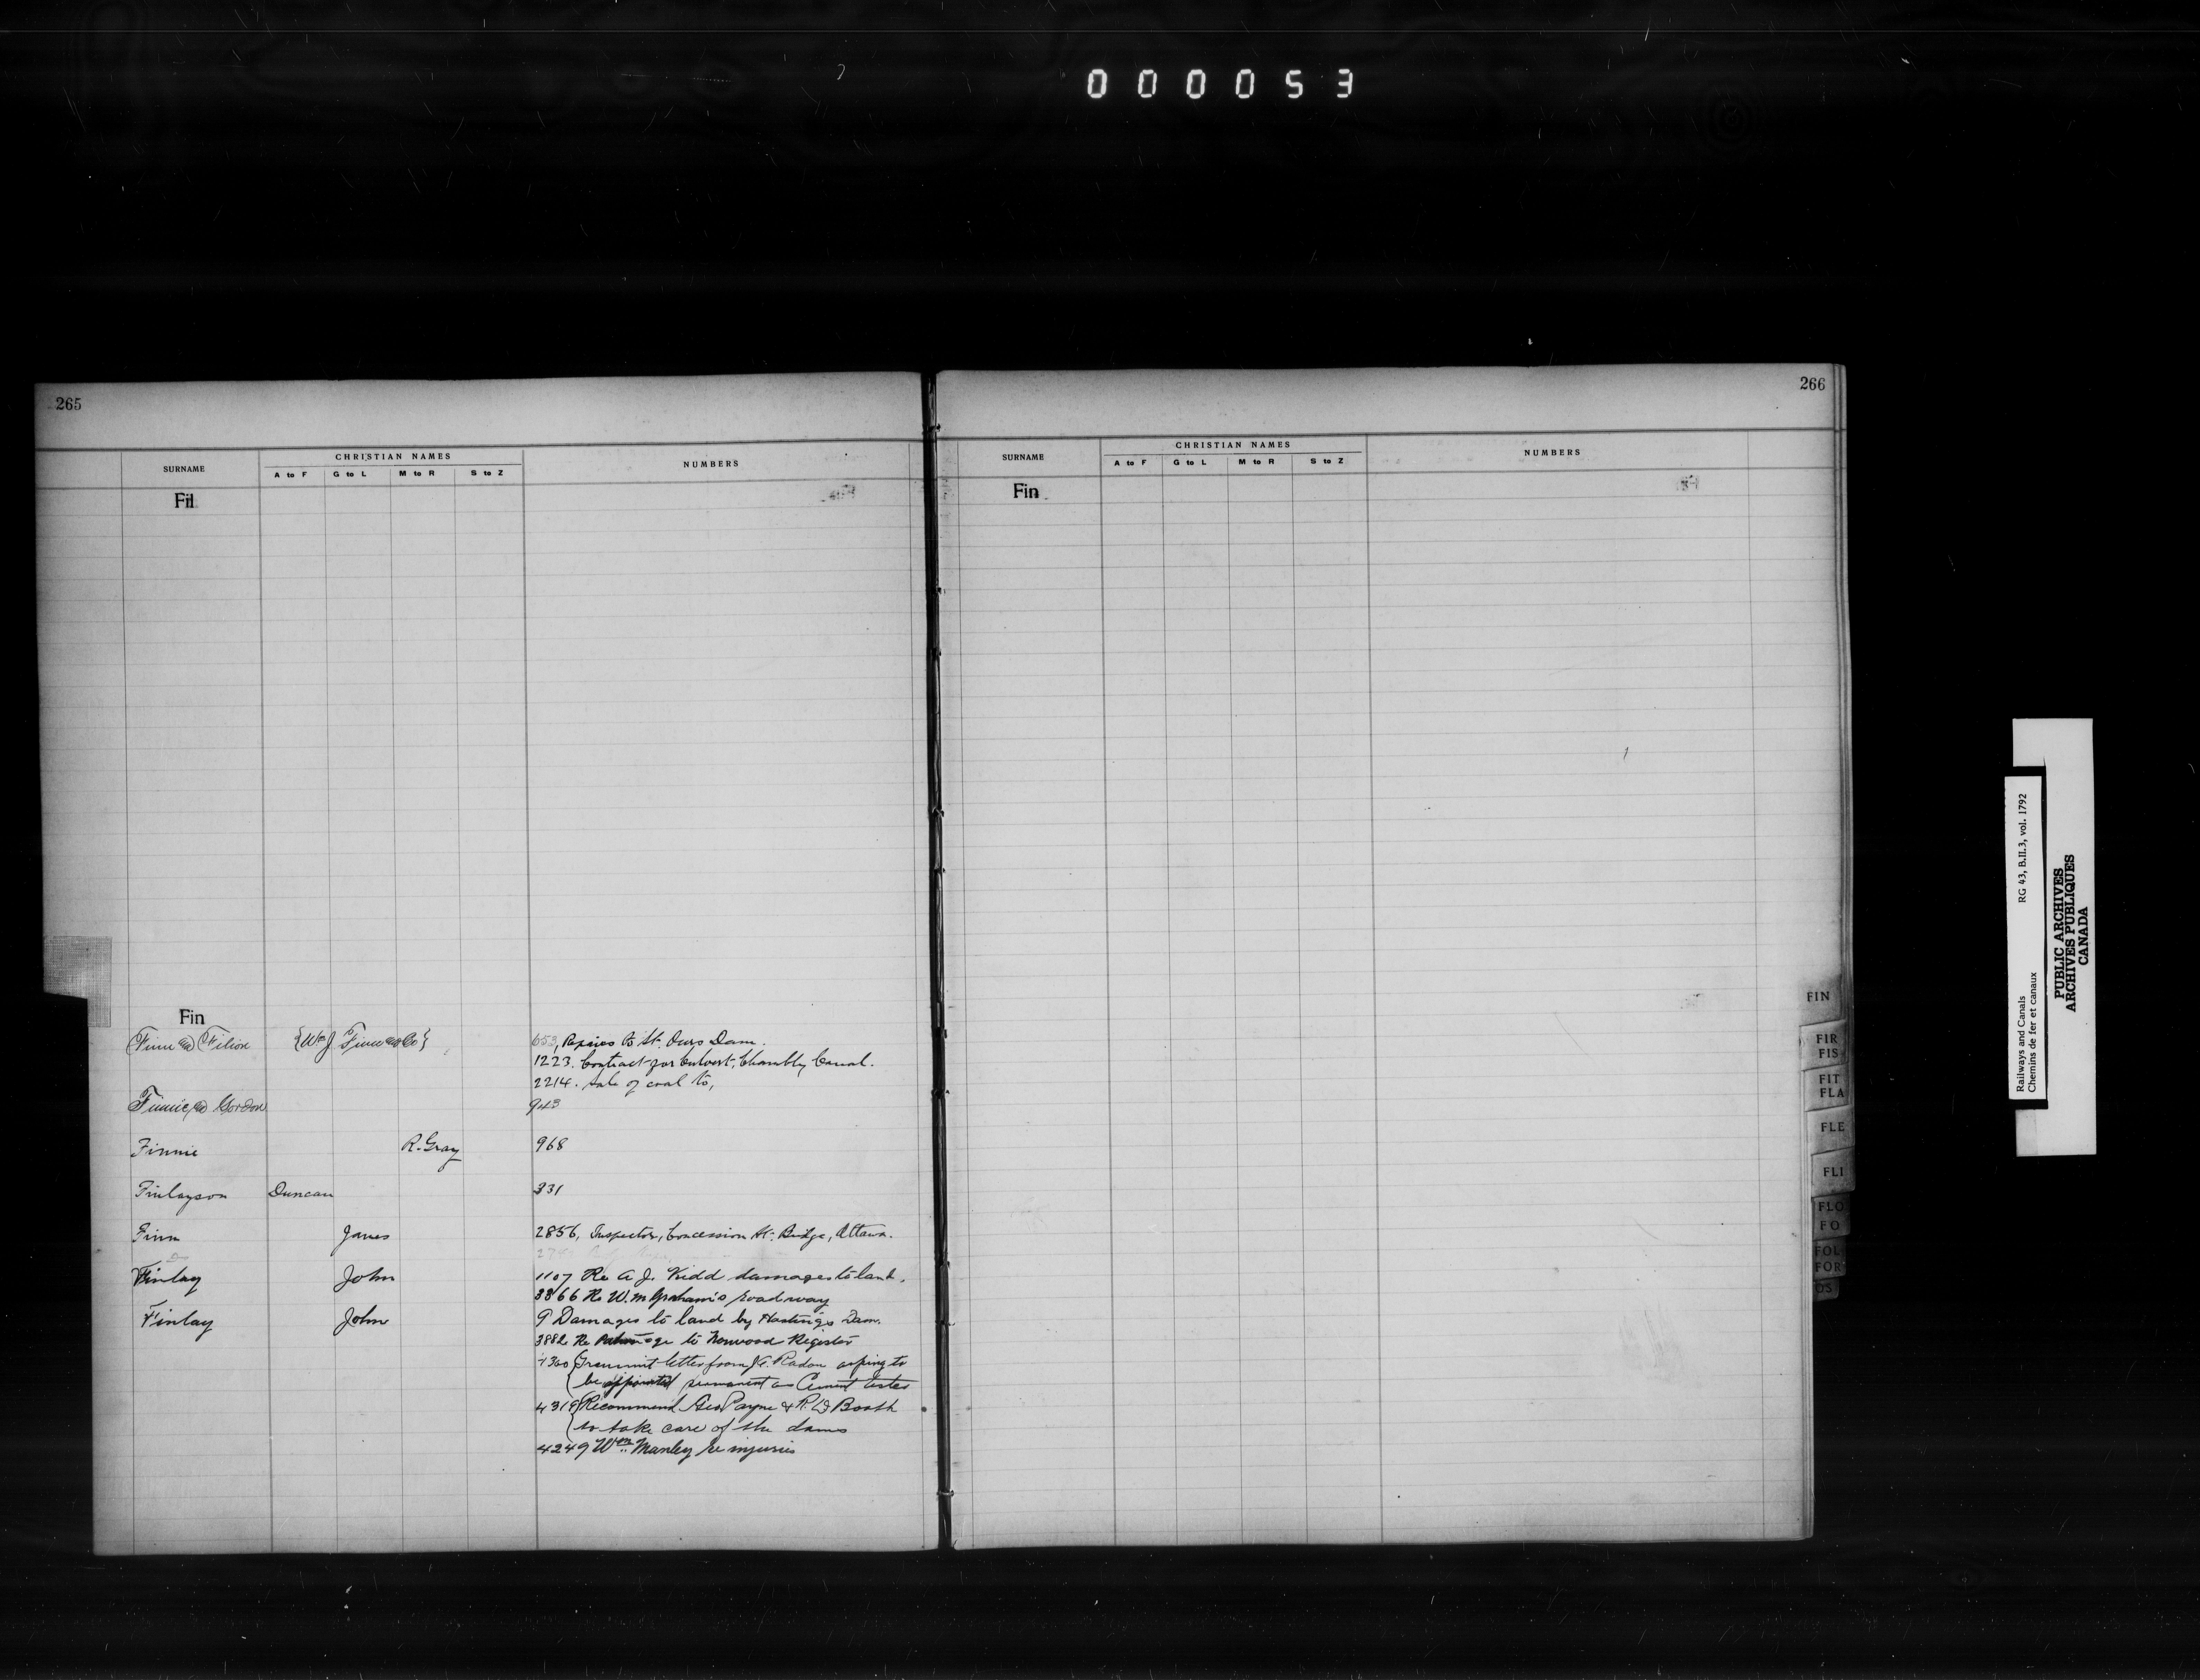 000053
265
SURNAME
CHRISTIAN NAMES
A to F G to L M to R S to Z
NUMBERS
Fil
Fin
Finn and Filion {Wm J Finn and Co} 653, Repairs to St. Ours Dam.
1223. Contract for Culvert, Chambly Canal.
2214. Sale of coal to,
Finnie and Gordon 943
Finnie R. Gray 968
Finlayson Duncan 331
Finn James 2856, Inspector, Concession St. Bridge, Ottawa.
Finlay John 1107 Re A J. Kidd damages to land.
3866 Re W. m Graham's roadway
Finlay John 9 Damages to land by Hastings Dam.
3882 Re Patronage to Norwood Register
4360 Transmit letter from asking to
be appointed permanent as Cement tester
4319 Recommend Geo Payne & R. W Booth
to take care of the dams
4249 Wm Manley re injuries
266
SURNAME
CHRISTIAN NAMES
A to F G to L M to R S to Z
NUMBERS
Fin
FIN
FIR
FIS
FIT
FLA
FLE
FLI
FLO
FO
FOL
FOR
OS
Railways and Canals RG 43, B.II.3, vol. 1792
Chemins de fer et canaux
PUBLIC ARCHIVES
ARCHIVES PUBLIQUES
CANADA